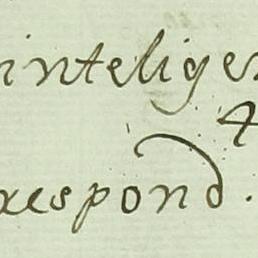 inteligen
4
respond.